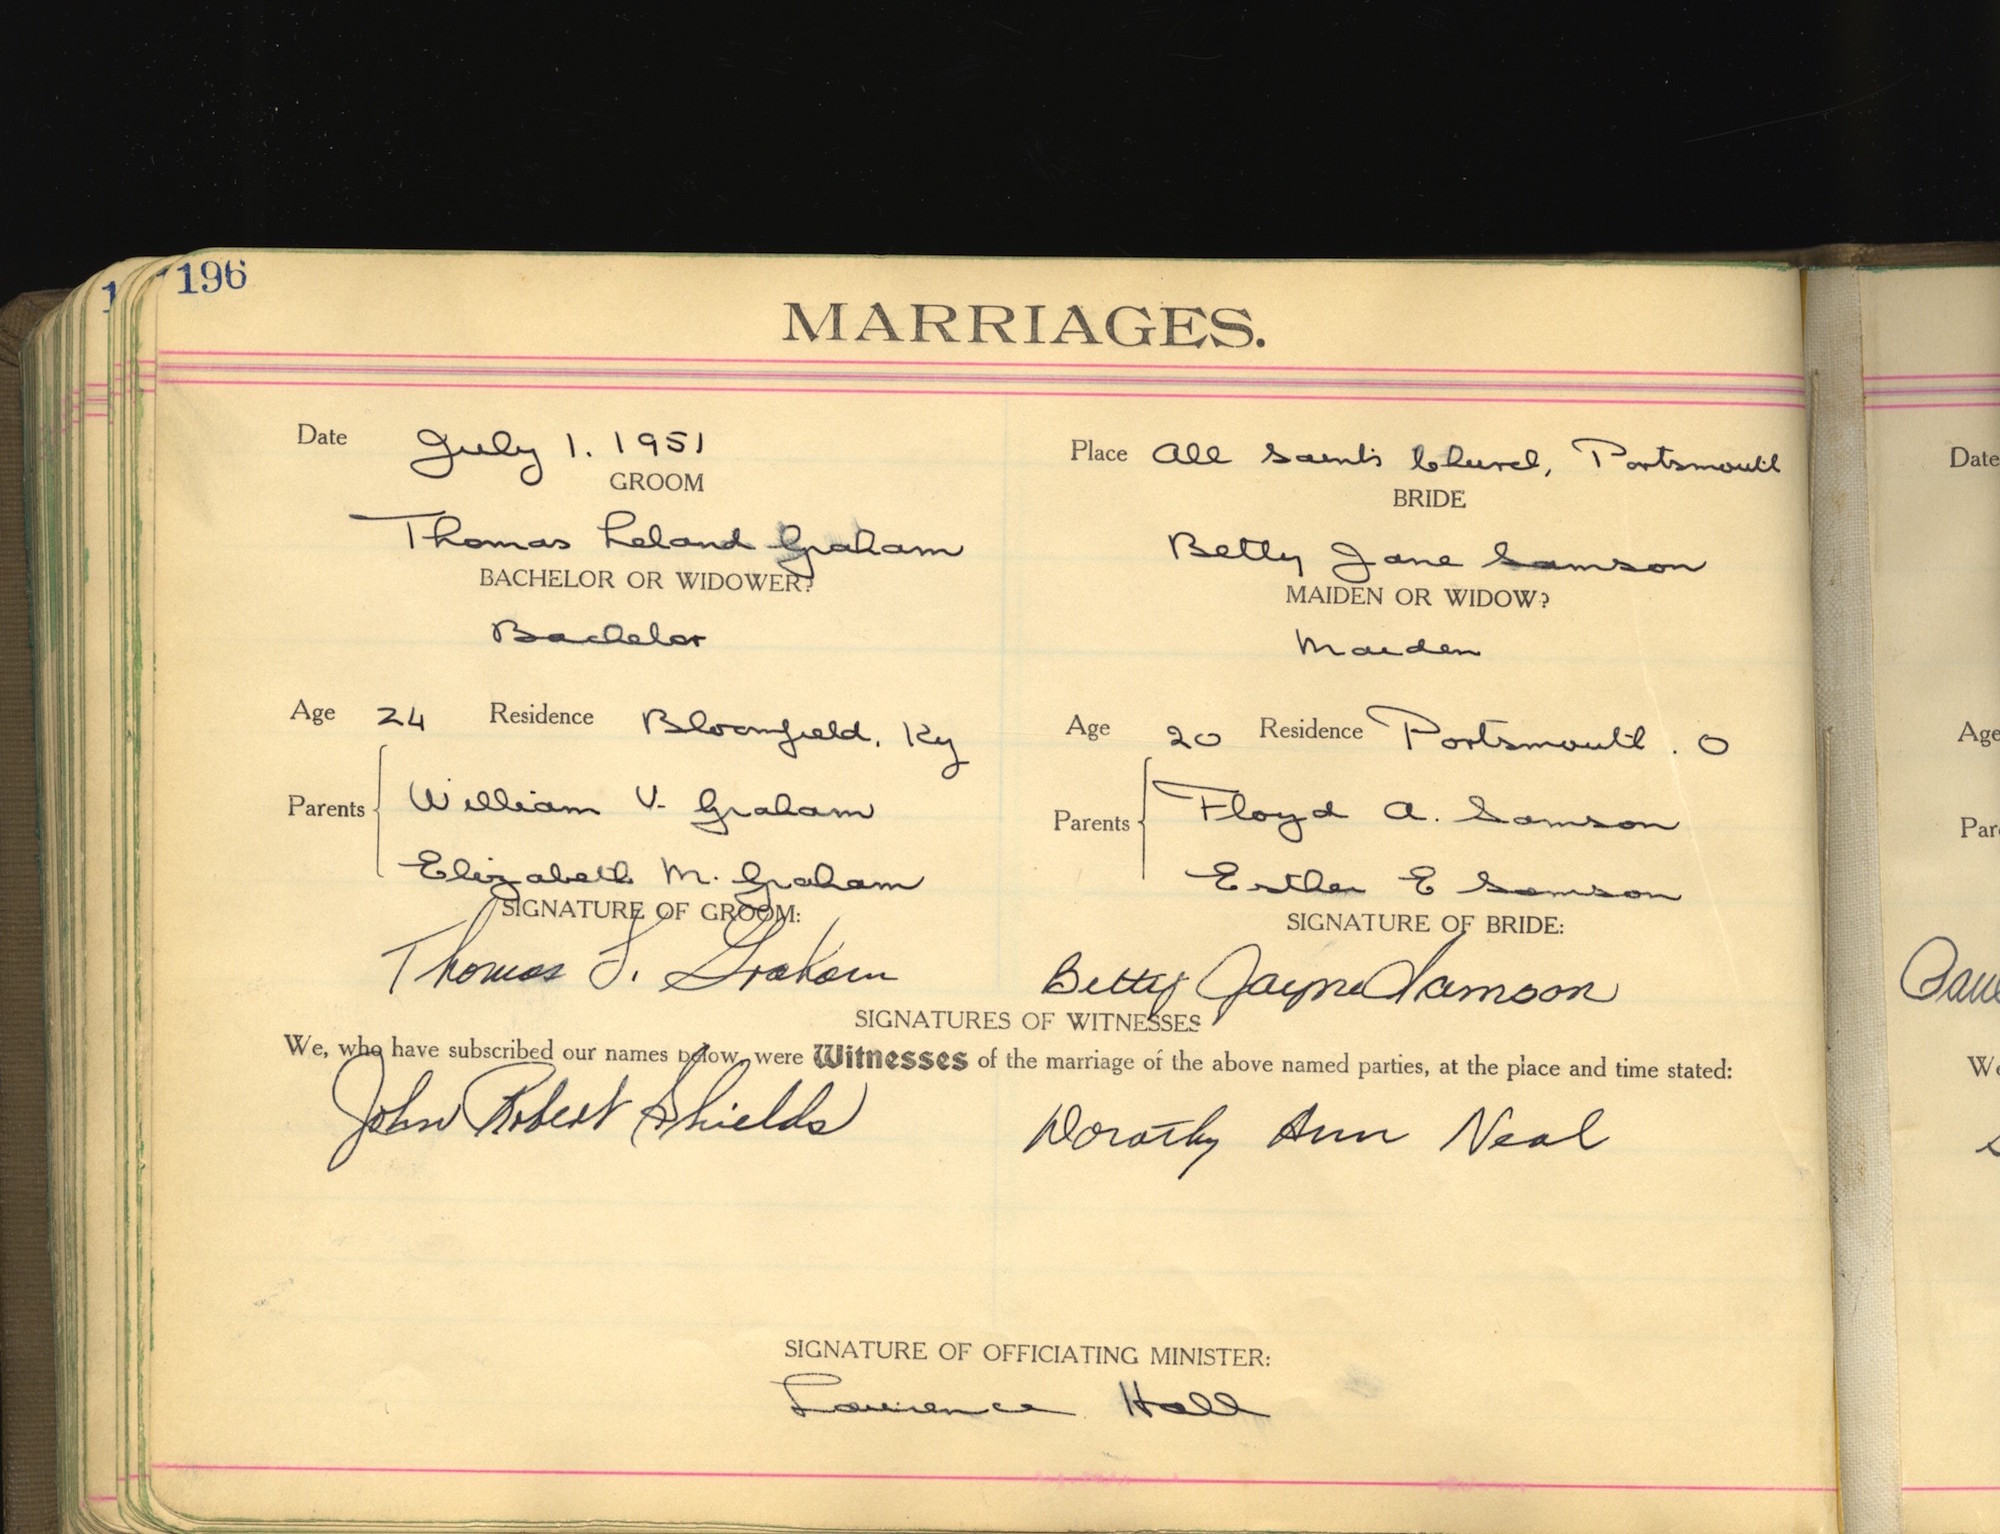 196
MARRIAGES.
Date July 1. 1951
Place All Saints Church, Portsmouth
GROOM
BRIDE
Thomas Leland Graham
Betty Jane Samson
BACHELOR OR WIDOWER?
MAIDEN OR WIDOW?
Bachelor
Maiden
Age 24 Residence Bloomfield, Ky
Age 20 Residence Portsmouth. O
Parents William V. Graham
Elizabeth M. Graham
Parents Floyd A. Samson
Esther E Samson
SIGNATURE OF GROOM:
SIGNATURE OF BRIDE:
Thomas L. Graham
Betty Jayne Samson
SIGNATURES OF WITNESSES
We, who have subscribed our names below, were Witnesses of the marriage of the above named parties, at the place and time stated:
John Robert Shields
Dorothy Ann Neal
SIGNATURE OF OFFICIATING MINISTER:
Lawrence Hall
Date
Age